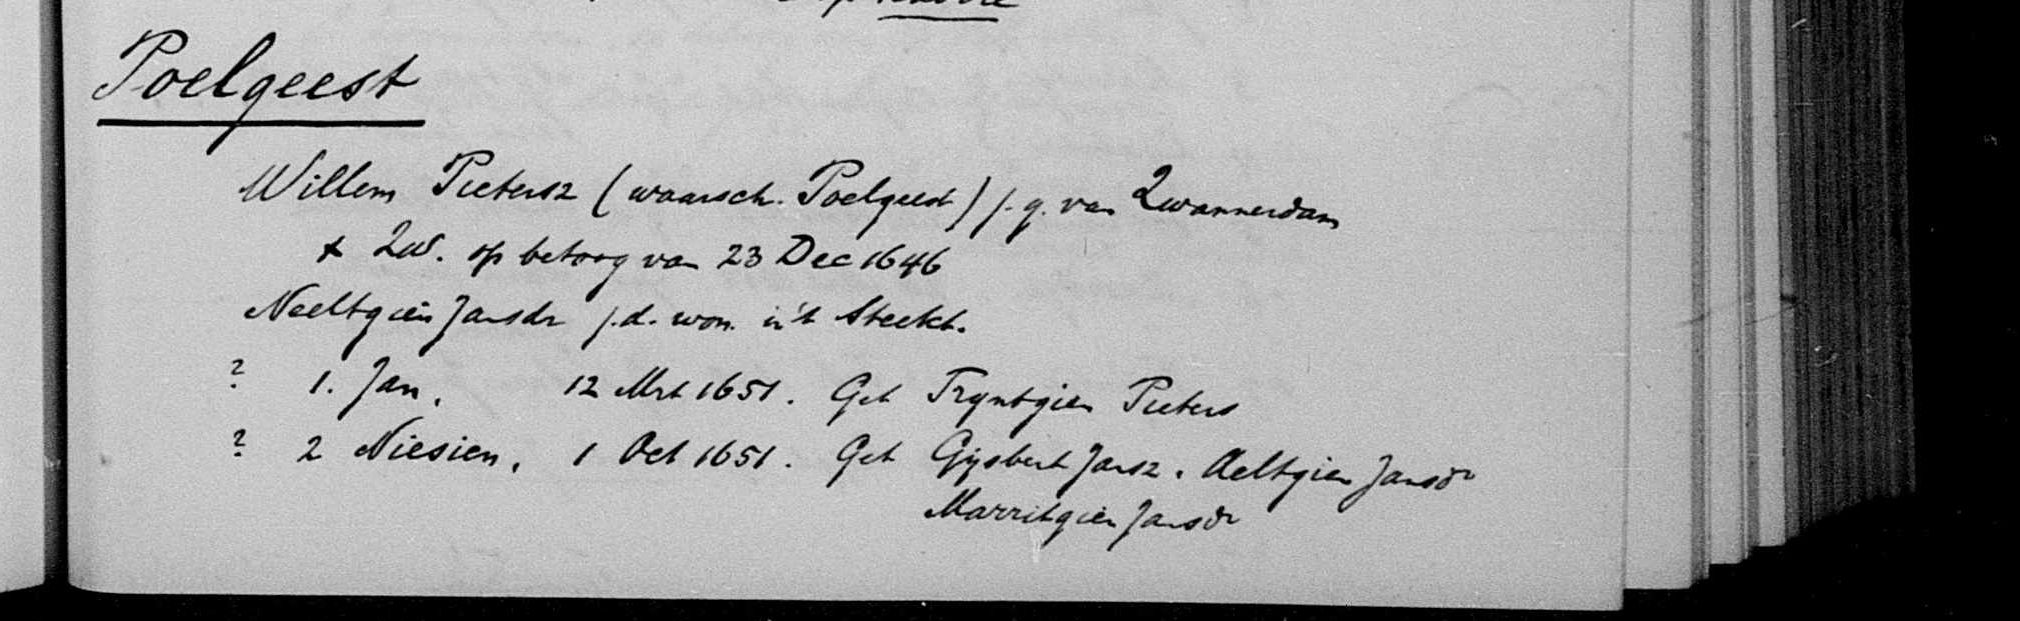 Poelgeest
Willem Pietersz (waarsch. Poelgeest) j.g. van Zwammerdam
x Zw. op betoog van 23 Dec 1646
Neeltgien Jansdr j.d. won. in't Steekt.
? 1. Jan, 12 Mrt 1651. Get Tryntgien Pieters
? 2 Niesien, 1 Oct 1651. Get Gijsbert Jansz. Aeltgien Jansdr
Marritgien Jansdr